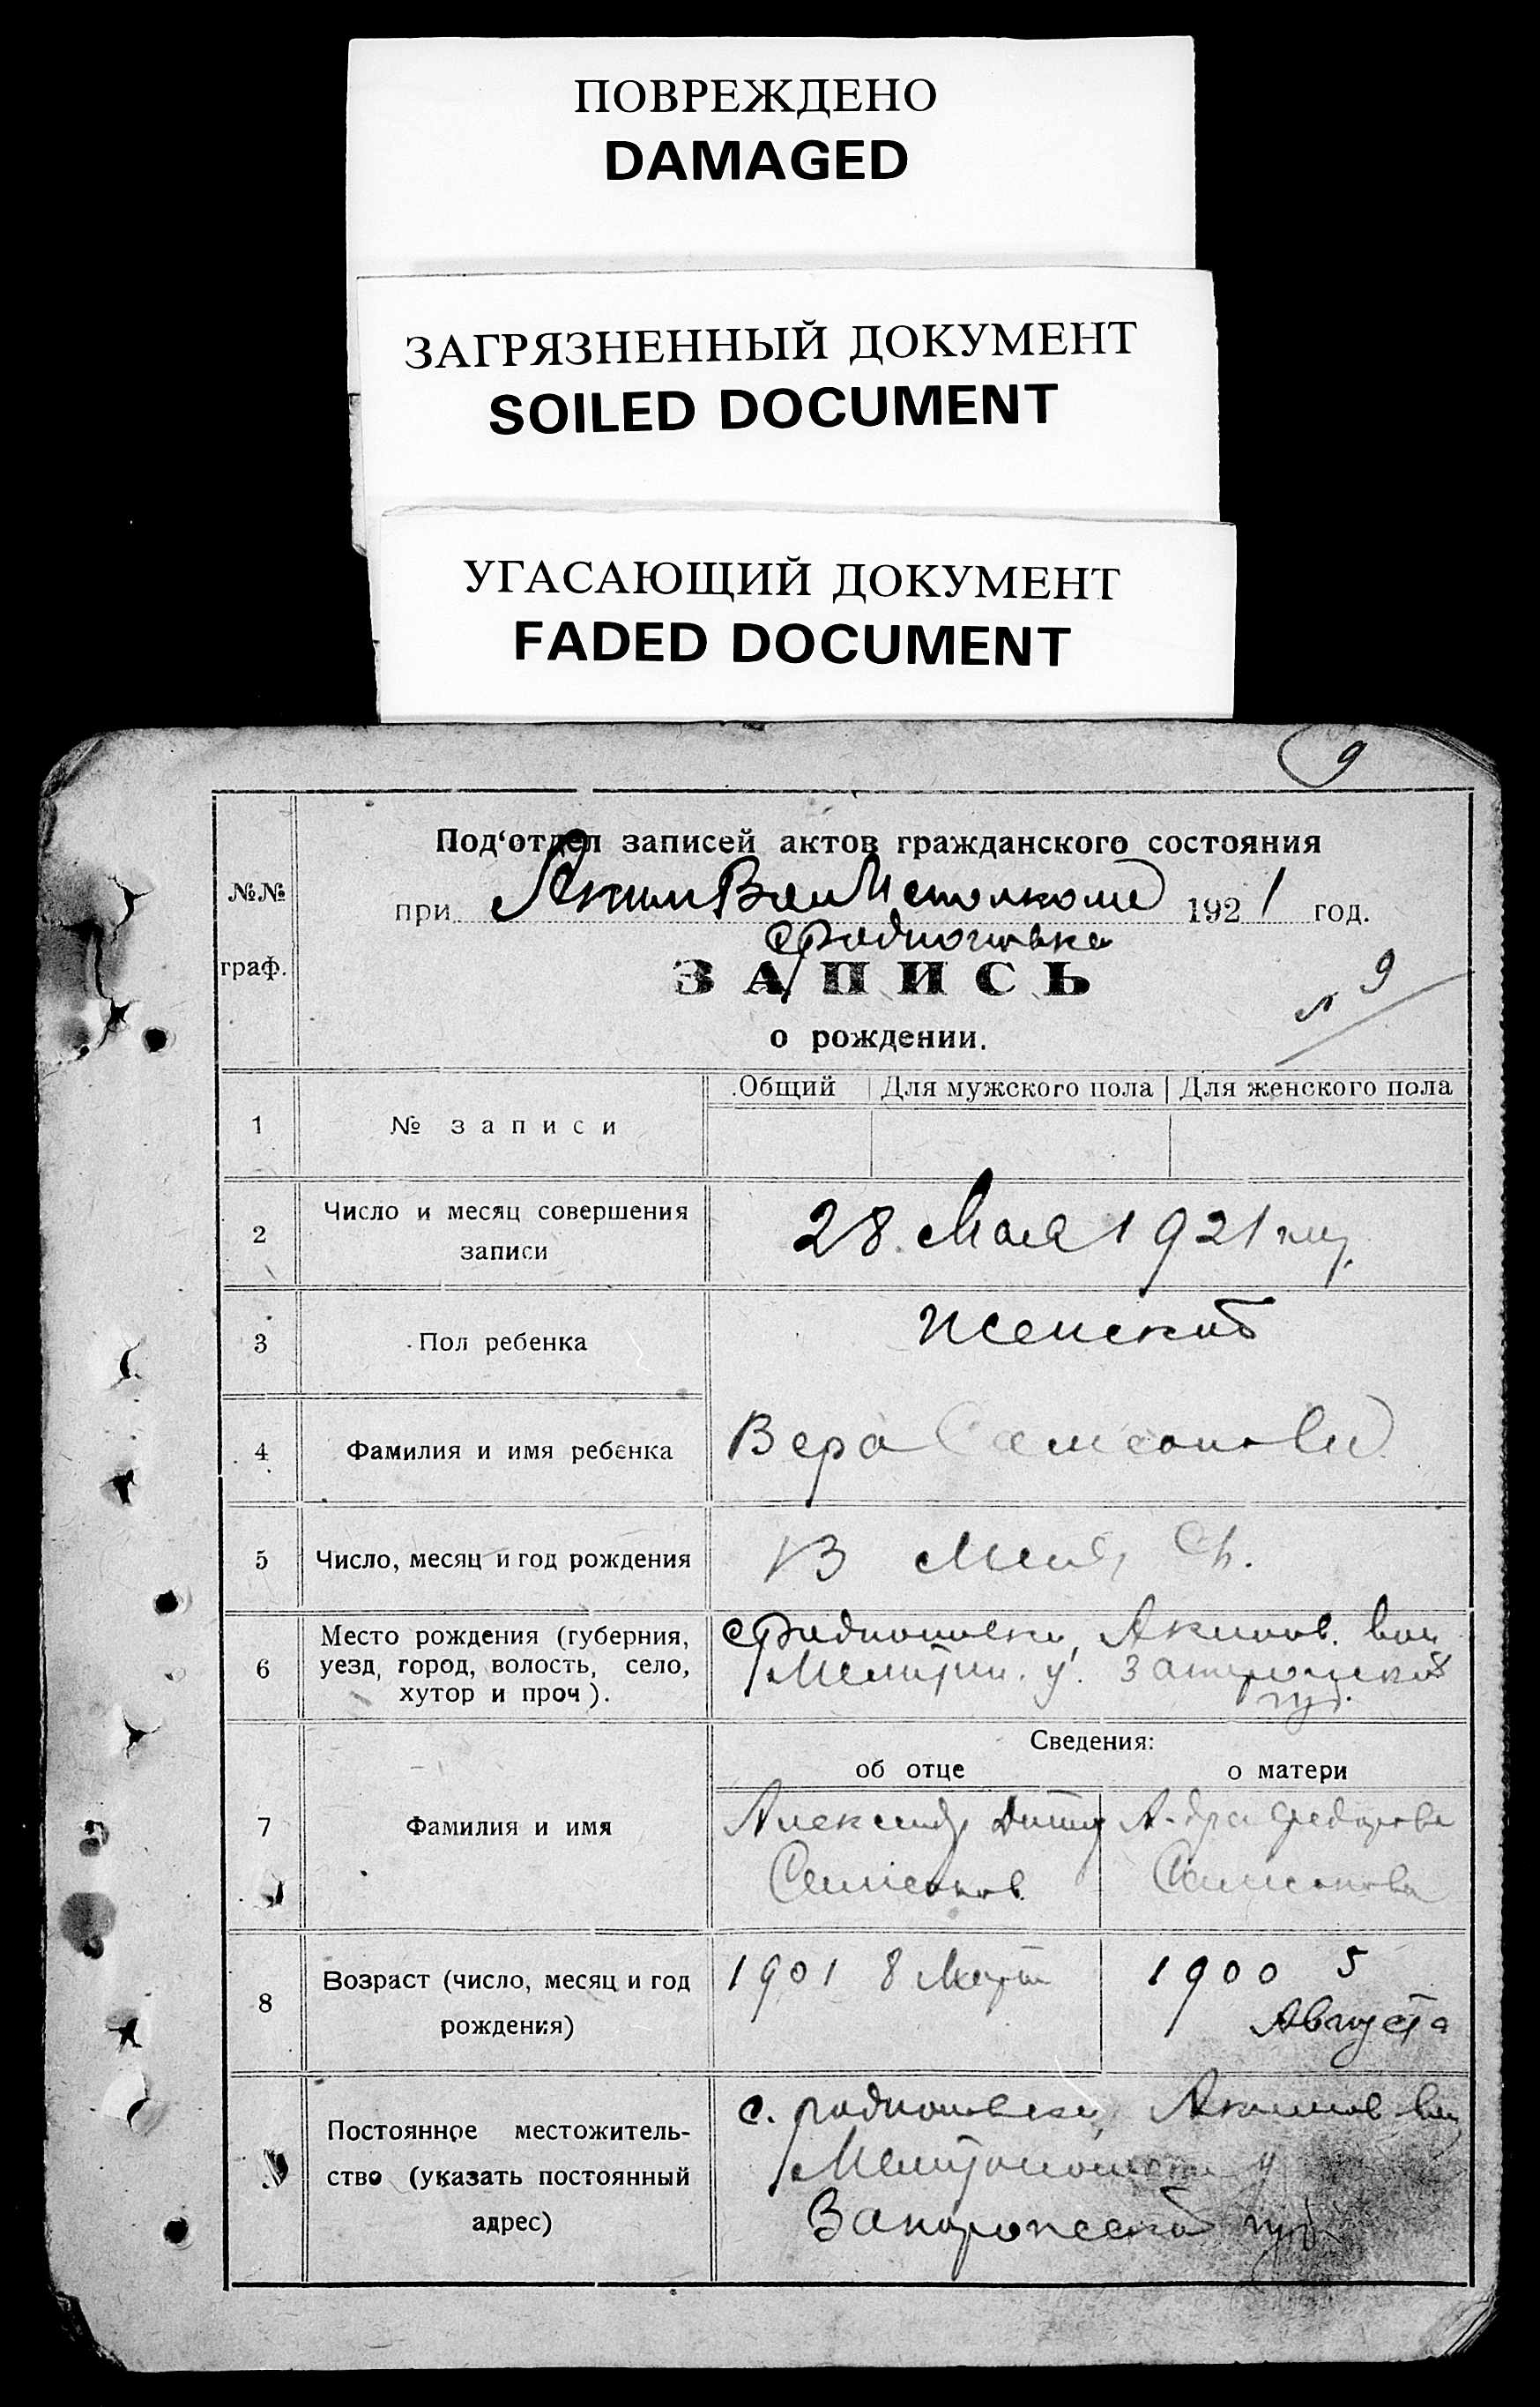 ПОВРЕЖДЕНО
DAMAGED
ЗАГРЯЗНЕННЫЙ ДОКУМЕНТ
SOILED DOCUMENT
УГАСАЮЩИЙ ДОКУМЕНТ
FADED DOCUMENT
9
Под‘отдел записей актов гражданского состояния
№№ граф.
при 1921 год.
ЗАПИСЬ
№ 9
о рождении.
Общий Для мужского пола Для женского пола
1 № записи
2 Число и месяц совершения записи
28 Мая 1921
3 Пол ребенка
Женской
4 Фамилия и имя ребенка
Вера
5 Число, месяц и год рождения
13
6 Место рождения (губерния, уезд, город, волость, село, хутор и проч).
Акимов. вол
у.
губ.
Сведения:
об отце о матери
7 Фамилия и имя
Александр Федорова
Самсонов Самсонова
8 Возраст (число, месяц и год рождения)
1901 8 Марта 1900 5
Августа
Постоянное местожительство (указать постоянный адрес)
с. Акимов вол
у
Запорожской губ.